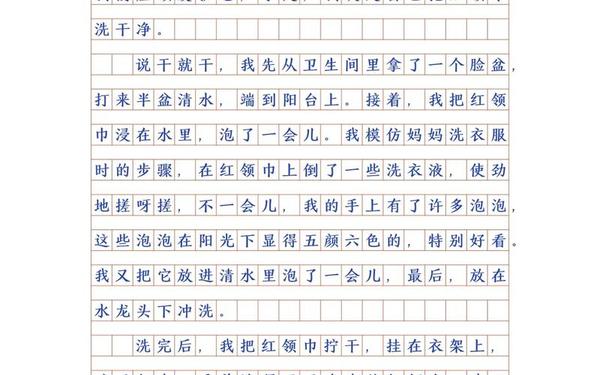 洗干净。
说干就干，我先从卫生间里拿了一个脸盆，
打来半盆清水，端到阳台上。接着，我把红领
巾浸在水里，泡了一会儿。我模仿妈妈洗衣服
时的步骤，在红领巾上倒了一些洗衣液，使劲
地搓呀搓，不一会儿，我的手上有了许多泡泡，
这些泡泡在阳光下显得五颜六色的，特别好看。
我又把它放进清水里泡了一会儿，最后，放在
水龙头下冲洗。
洗完后，我把红领巾拧干，挂在衣架上，